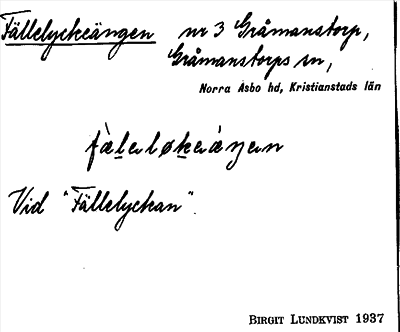 Fällelyckeängen nr 3 Gråmanstorp,
Gråmanstorps sn,
Norra Åsbo hd, Kristianstads län
Vid "Fällelyckan".
BIRGIT LUNDKVIST 1937